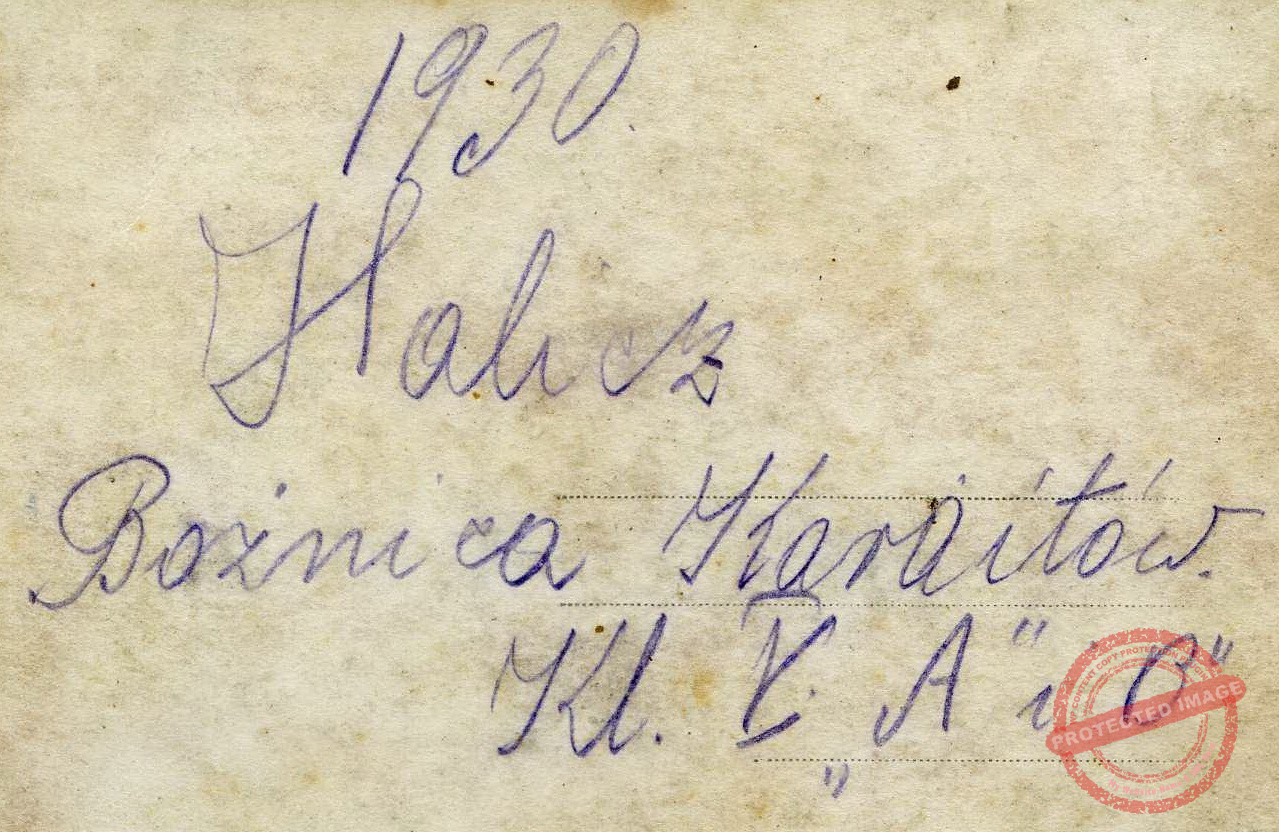 1930.
Halicz
Bożnica Karaitów.
Kl. V. „A" i B"
PROTECTED IMAGE